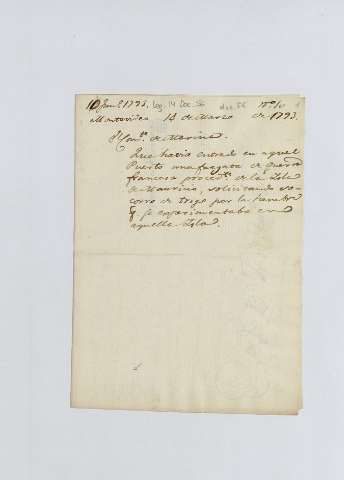 1793. Leg. 14 Doc. 56 doc. 56
Montevideo 14 de Marzo de 1793.
de Marina.
Que havia entrado en aquel
Puerto una fragata de guerra
francesa proced.te de la Isla
de Mauricio, solicitando so-
corro de trigo por la hambre
q.e se experimentaba en
aquella Isla.